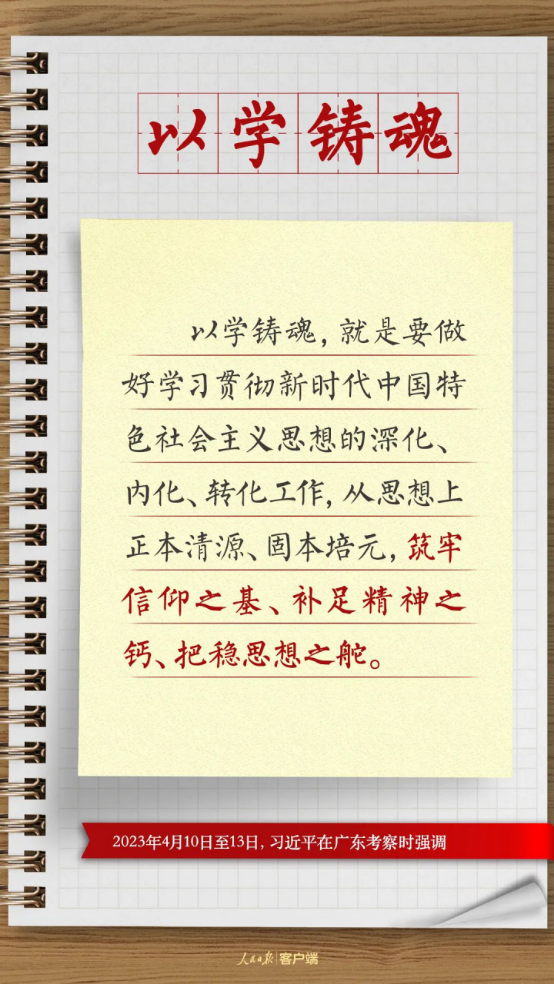 以学铸魂
以学铸魂，就是要做
好学习贯彻新时代中国特
色社会主义思想的深化、
内化、转化工作，从思想上
正本清源、固本培元，筑牢
信仰之基、补足精神之
钙、把稳思想之舵。
2023年4月10日至13日，习近平在广东考察时强调
人民日报|客户端